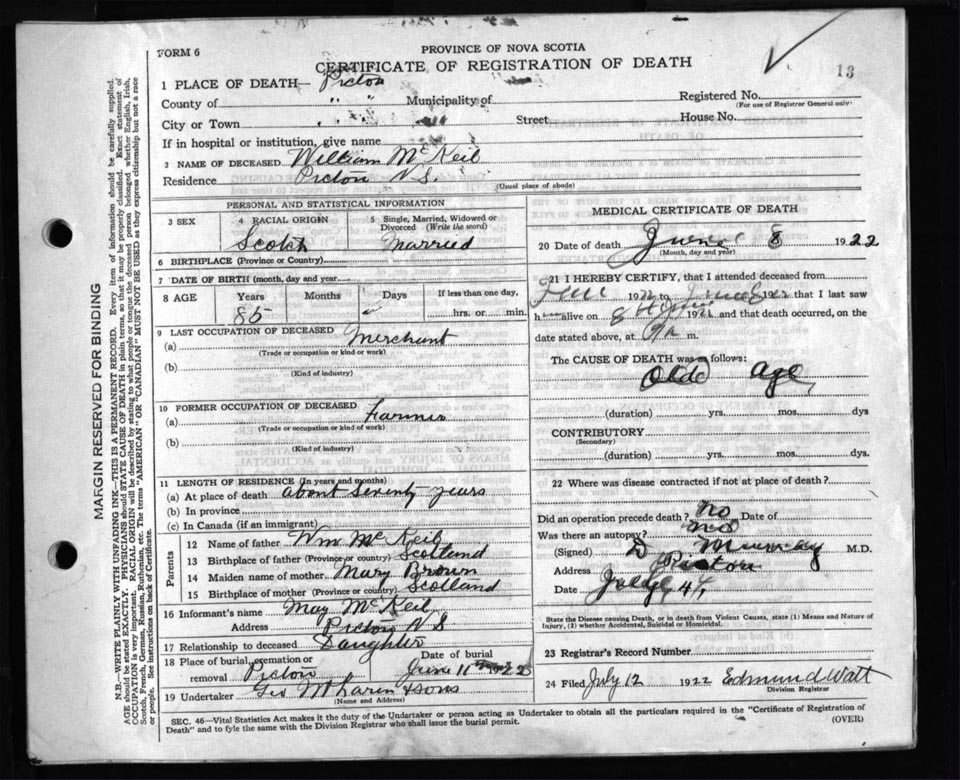 FORM 6
PROVINCE OF NOVA SCOTIA
CERTIFICATE OF REGISTRATION OF DEATH
13
1 PLACE OF DEATH— Pictou
County of " " Municipality of
Registered No.
(For use of Registrar General only)
City or Town " " Street House No.
If in hospital or institution, give name
2 NAME OF DECEASED William McKeil
Residence Pictou N.S.
(Usual place of abode)
PERSONAL AND STATISTICAL INFORMATION
3 SEX 4 RACIAL ORIGIN 5 Single, Married, Widowed or Divorced (Write the word)
Scotch Married
6 BIRTHPLACE (Province or Country)
7 DATE OF BIRTH (month, day and year)
8 AGE Years Months Days If less than one day,
85 hrs. or min.
9 LAST OCCUPATION OF DECEASED
(a) Merchant
(Trade or occupation or kind or work)
(b)
(Kind of industry)
10 FORMER OCCUPATION OF DECEASED
(a) Farmer
(Trade or occupation or kind of work)
(b)
(Kind of industry)
11 LENGTH OF RESIDENCE (In years and months)
(a) At place of death about Seventy years
(b) In province
(c) In Canada (if an immigrant)
Parents
12 Name of father Wm McKeil
13 Birthplace of father (Province or country) Scotland
14 Maiden name of mother Mary Brown
15 Birthplace of mother (Province or country) Scotland
16 Informant's name May McKeil
Address Pictou N S
17 Relationship to deceased Daughter
18 Place of burial, cremation or removal Pictou Date of burial June 11 1922
19 Undertaker Geo & Sons
(Name and Address)
MEDICAL CERTIFICATE OF DEATH
20 Date of death June 8 1922
(Month, day and year)
21 I HEREBY CERTIFY, that I attended deceased from
19 to 19 that I last saw
h alive on 8 19 and that death occurred, on
date stated above, at m.
The CAUSE OF DEATH was as follows:
Olde age
(duration) yrs. mos. dys
CONTRIBUTORY
(Secondary)
(duration) yrs. mos. dys.
22 Where was disease contracted if not at place of death?
Did an operation precede death? no Date of
Was there an autopsy? no
(Signed) D Murray M.D.
Address Pictou
Date July
State the Disease causing Death, or in death from Violent Causes, state (1) Means and Nature of
Injury, (2) whether Accidental, Suicidal or Homicidal.
23 Registrar's Record Number
24 Filed July 12 1922 Edmund Watt
Division Registrar
SEC. 46—Vital Statistics Act makes it the duty of the Undertaker or person acting as Undertaker to obtain all the particulars required in the "Certificate of Registration of
Death" and to fyle the same with the Division Registrar who shall issue the burial permit.
(OVER)
MARGIN RESERVED FOR BINDING
N.B.—WRITE PLAINLY WITH UNFADING INK—THIS IS A PERMANENT RECORD. Every item of information should be carefully supplied.
AGE should be stated EXACTLY. PHYSICIANS should STATE CAUSE OF DEATH in plain terms, so that it may be properly classified. Exact statement of
OCCUPATION is very important. RACIAL ORIGIN will be described by stating to what people or tongue the deceased person belonged whether English, Irish,
Scotch, French, German, Russian, Ruthenian, etc. The terms "AMERICAN" OR "CANADIAN" MUST NOT BE USED as they express citizenship but not a race
or people. See instructions on back of Certificate.